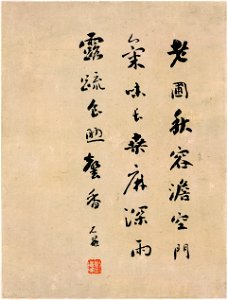 老圃秋容澹空門
氣味長桑麻深雨
露蔬色照聲香